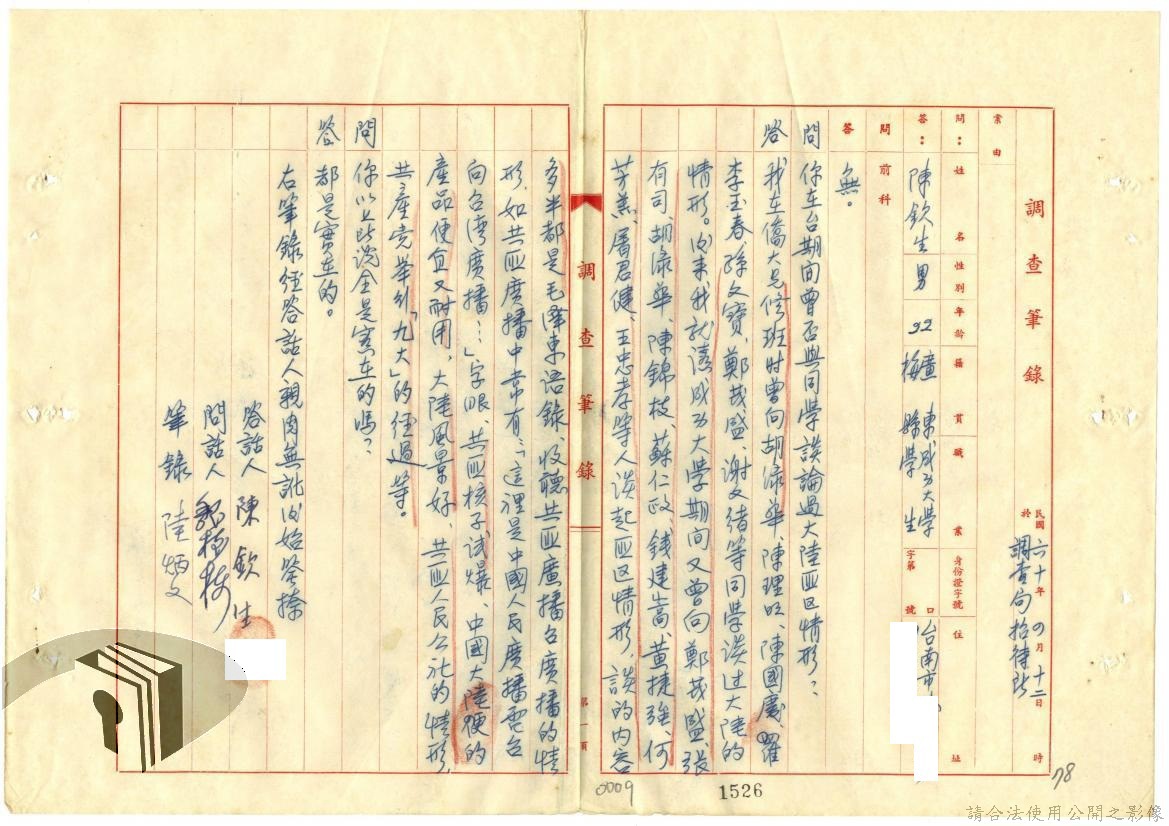 調查筆錄
民國六十年四月十二日 時
於調查局招待所
案由
問：姓名 性別 年齡 籍貫 職業 身份證字號 住址
答：陳欽生 男 22 廣東梅縣 成功大學學生 字第 號 口台南市
問 前科
答 無。
問 你在台期間曾否與同學談論過大陸匪區情形？
答 我在僑大先修班時曾向胡淥華、陳理旺、陳國慶、羅
李玉春、孫文寶、鄭茂盛、謝文緒等同學談过大陸的
情形。後來我就讀成功大學期间又曾向鄭茂盛、張
有司、胡淥華、陳錦枝、蘇仁政、錢建嵩、黃捷強、何
芳羔、屠君健、王忠孝等人談起匪区情形，談的內容
調查筆錄
第一頁
多半都是毛澤東语錄、收聽共匪廣播台廣播的情
形，如共匪廣播中常有：「這裡是中國人民廣播電台
向台灣廣播…」字眼、共匪核子試爆、中國大陸的
產品便宜又耐用，大陸風景好、共匪人民公社的情形、
共產党举行「九大」的经過等。
問 你以上所說全是實在的嗎？
答 都是實在的。
右筆錄經答話人親閱無訛後始簽捺
答話人 陳欽生
問話人
筆錄 陸炳文
0009
1526
78
請合法使用公開之影像